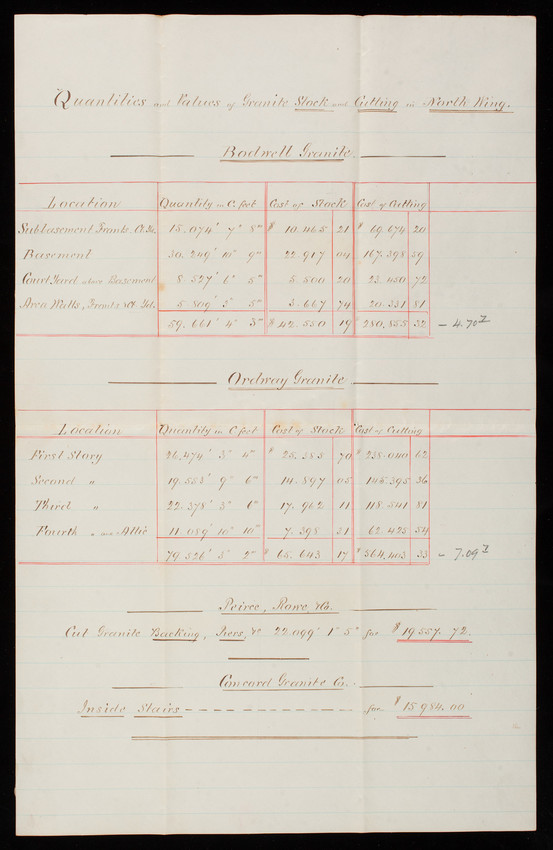 Quantities and Values of Granite Stock and Cutting in North Wing.
Bodwell Granite.
Location Quantity in C. feet Cost of Stock Cost of Cutting
Subbasement Fronts & Ct. Yd. 15.074' 7" 8''' $ 10.465 21 $ 69.674 20
Basement 30.249' 10" 9''' 22.917 04 167.398 59
Court Yard above Basement 8.527' 6" 5''' 5.500 20 23.450 72
Area Walls, Fronts & Ct. Yd. 5.809' 3" 5''' 3.667 74 20.331 81
59.661' 4" 3''' $ 42.550 19 $ 280.855 32 – 4.70
Ordway Granite.
Location Quantity in C. feet Cost of Stock Cost of Cutting
First Story 26.474' 3" 4''' $ 25.385 70 $ 238.040 62
Second " 19.583' 9" 6''' 14.897 05 145.395 36
Third " 22.378' 3" 6''' 17.962 11 118.541 81
Fourth " and Attic 11.089' 10" 10''' 7.398 31 62.425 54
79.526' 3" 2''' $ 65.643 17 $ 564.403 33 – 7.09
Peirce, Rowe, & Co.
Cut Granite Backing, Piers, &c 22.099' 1" 5''' for $ 19.557. 72.
Concord Granite Co.
Inside Stairs for $ 15.984.00